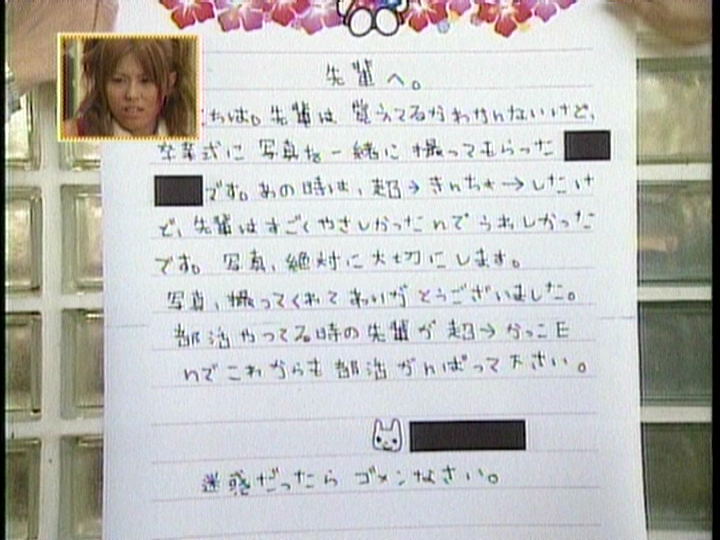 先輩へ。
ちは。先輩は覚えてるかわかんないけど、
卒業式に写真を一緒に撮ってもらった
です。あの時は、超→きんちょ→したけ
ど、先輩はすごくやさしかったんでうれしかった
です。写真、絶対に大切にします。
写真、撮ってくれてありがとうございました。
部活やってる時の先輩が超→かっこE
んでこれからも部活がんばって下さい。
迷惑だったらゴメンなさい。